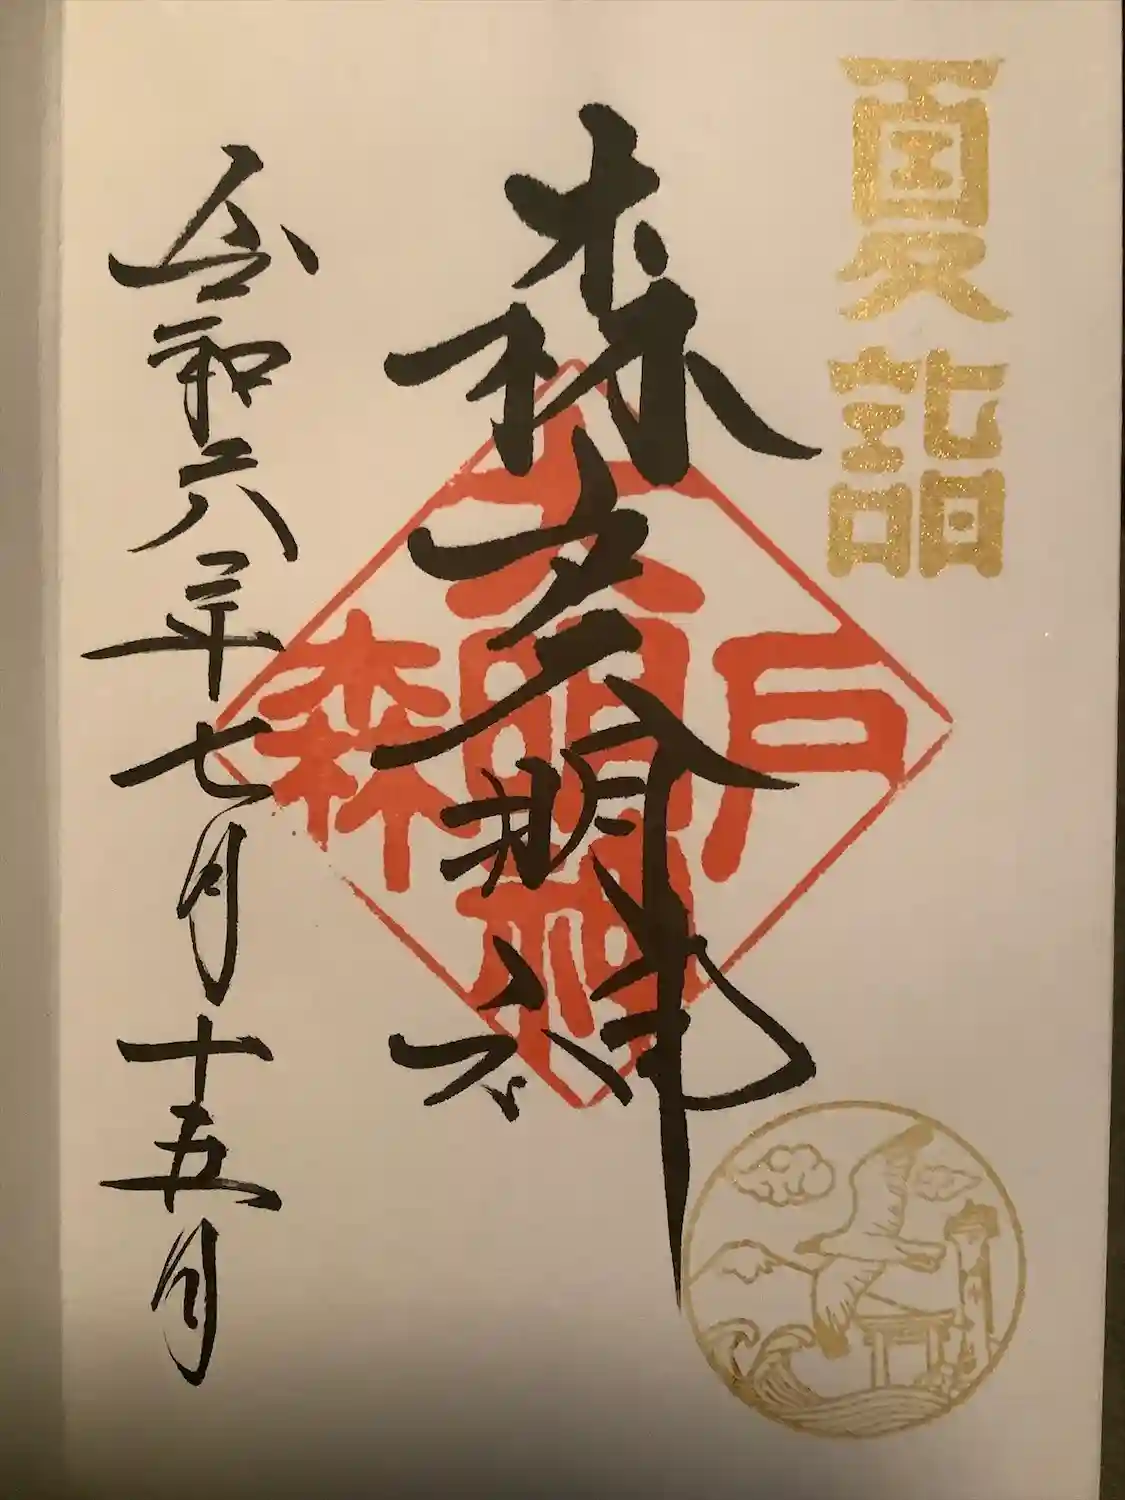 夏詣
森戸大明神
森戸
大明神
令和六年七月十五日